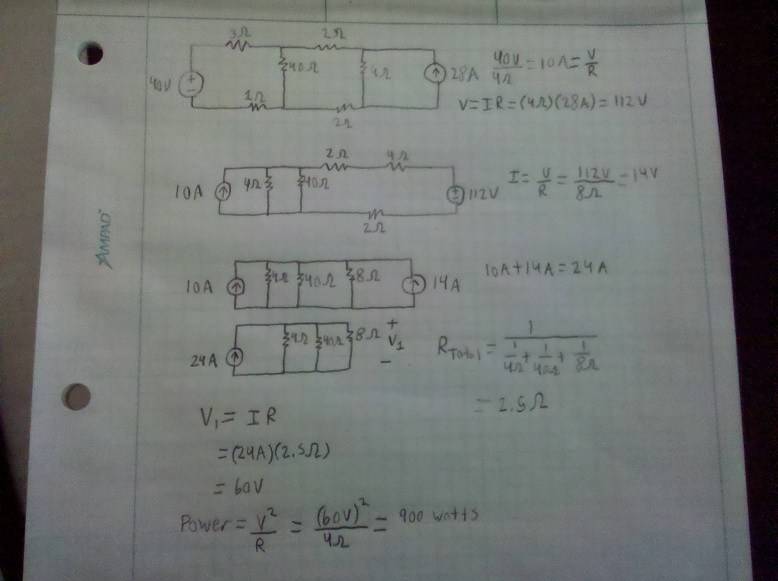 3Ω 2Ω
40V 40Ω 4Ω 28A
1Ω 2Ω
40V/4Ω = 10A = V/R
V = IR = (4Ω)(28A) = 112V
2Ω 4Ω
10A 4Ω 40Ω 112V
2Ω
I = V/R = 112V/8Ω = 14V
10A 4Ω 40Ω 8Ω 14A
10A + 14A = 24A
24A 4Ω 40Ω 8Ω + V1 -
R Total = 1/(1/4Ω + 1/40Ω + 1/8Ω)
= 2.5Ω
V1 = IR
= (24A)(2.5Ω)
= 60V
Power = V²/R = (60V)²/4Ω = 900 watts
AMPAD